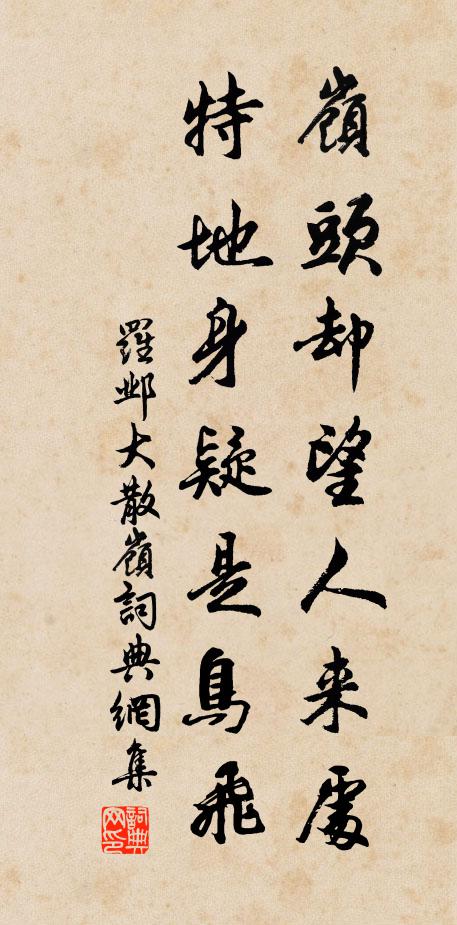 嶺頭却望人来處
特地身疑是鳥飛
羅鄴大散嶺詞典網集
詞典网印